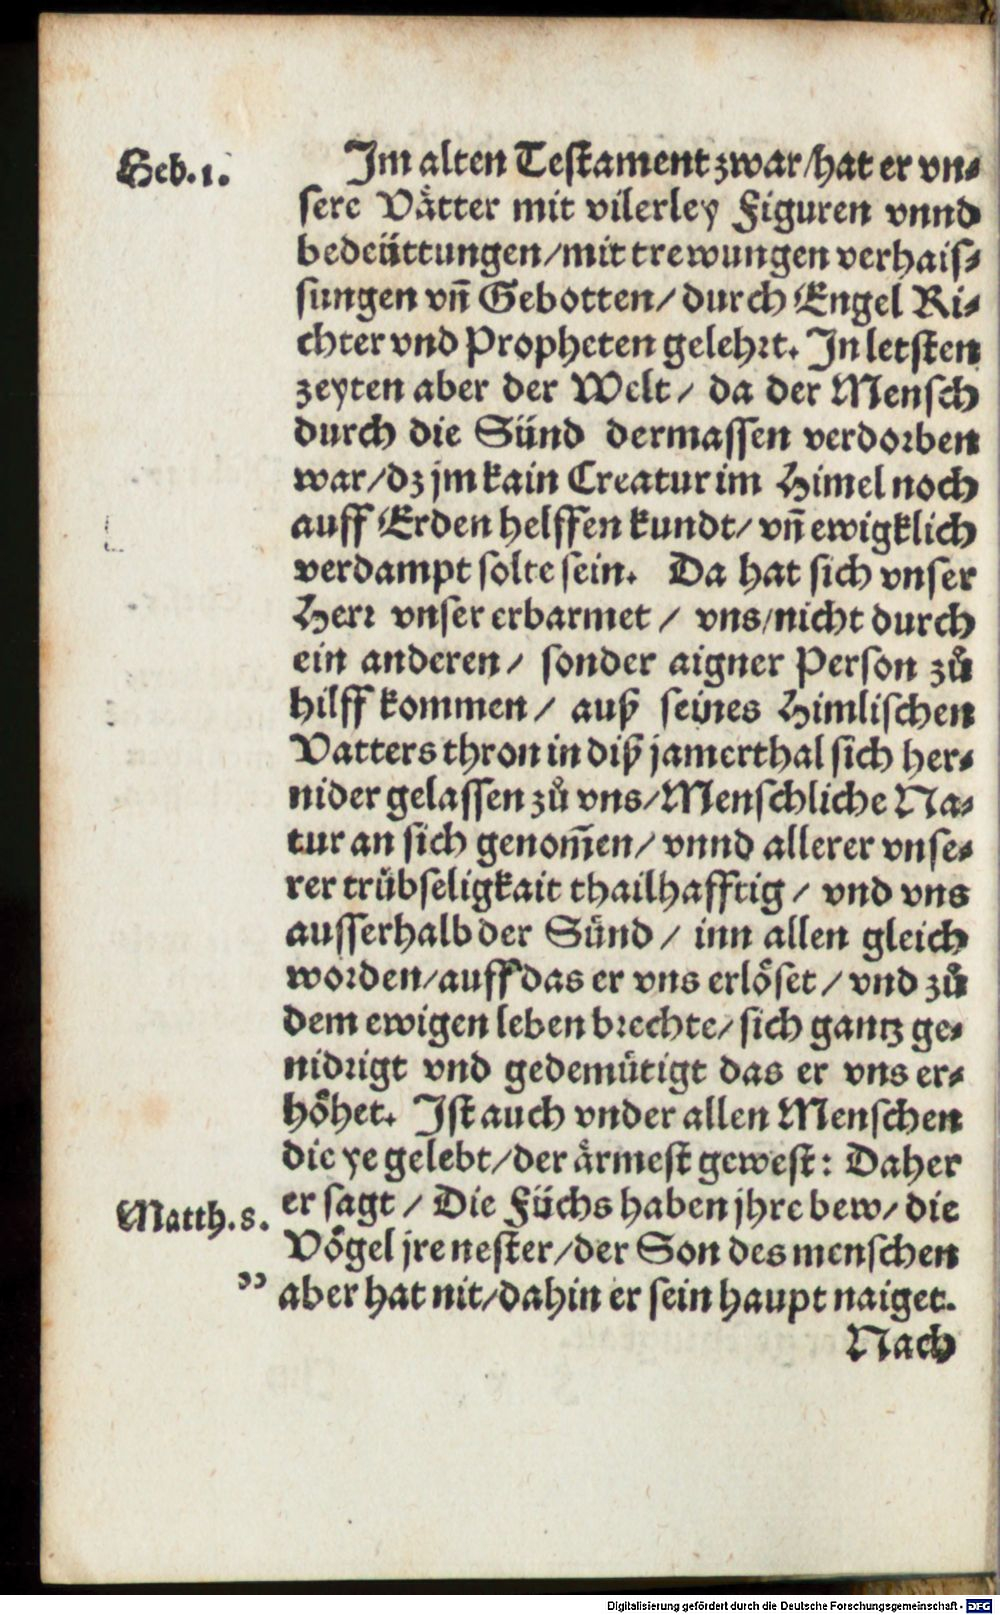 Heb. 1.
Im alten Testament zwar/hat er vn⸗
sere Vätter mit vilerley Figuren vnnd
bedeüttungen/mit trewungen verhais⸗
sungen vñ Gebotten/durch Engel Ri⸗
chter vnd Propheten gelehrt. In letsten
zeyten aber der Welt/ da der Mensch
durch die Sünd dermassen verdorben
war/dz jm kain Creatur im Himel noch
auff Erden helffen kundt/ vñ ewigklich
verdampt solte sein. Da hat sich vnser
Herr vnser erbarmet / vns/nicht durch
ein anderen/ sonder aigner Person zů
hilff kommen/ auß seines Himlischen
Vatters thron in diß jamerthal sich her⸗
nider gelassen zů vns/Menschliche Na⸗
tur an sich genom̃en/ vnnd allerer vnse⸗
rer trübseligkait thailhafftig/ vnd vns
ausserhalb der Sünd/ inn allen gleich
worden/auff das er vns erlöset/ vnd zů
dem ewigen leben brechte/ sich gantz ge⸗
nidrigt vnd gedemütigt das er vns er⸗
höhet. Ist auch vnder allen Menschen
die ye gelebt/der ärmest gewest: Daher
Matth. 8.
er sagt / Die Füchs haben jhre bew/ die
Vögel jre nester/der Son des menschen
” aber hat nit/dahin er sein haupt naiget.
Nach
Digitalisierung gefördert durch die Deutsche Forschungsgemeinschaft - DFG